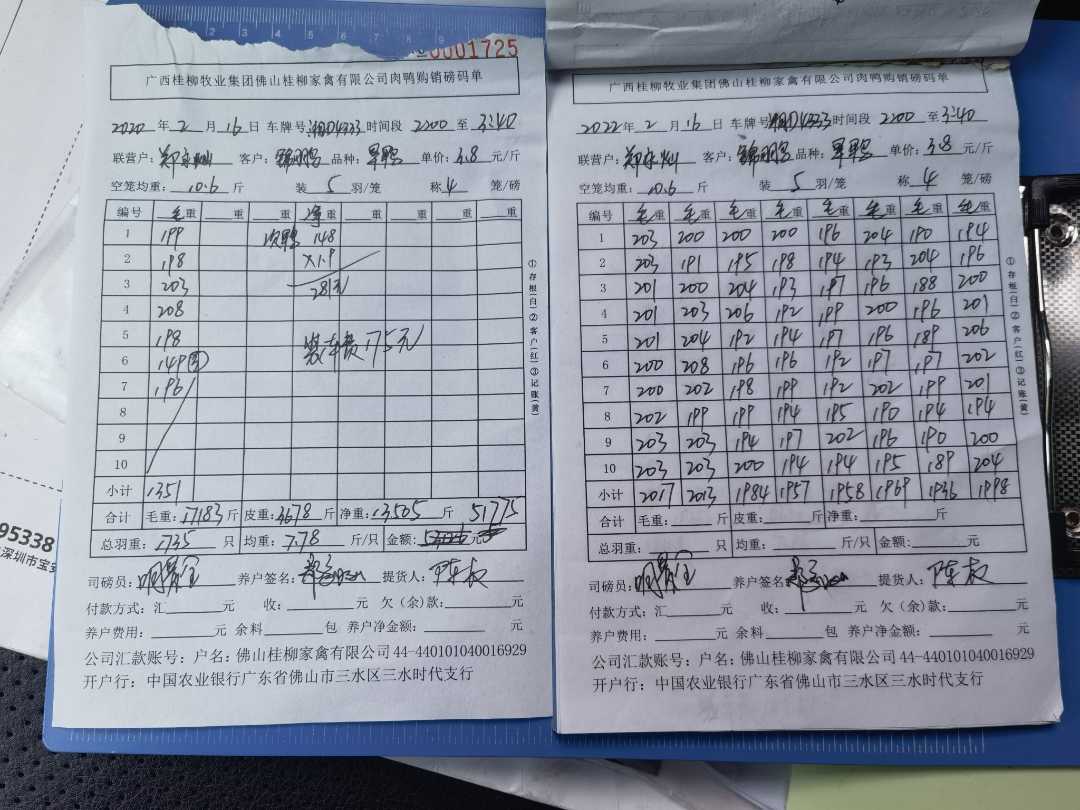 0001725
广西桂柳牧业集团佛山桂柳家禽有限公司肉鸭购销磅码单
2020年2月16日 车牌号湘D14323时间段2200至3:40
联营户: 客户: 品种: 单价:3.8元/斤
空笼均重:10.6斤 装5羽/笼 称4笼/磅
编号 毛重 重 重 净重 重 重 重 重
1 199 次鸭 148
2 198 ×1.9
3 203 281元
4 208
5 198 装车费175元
6 149③
7 196
8
9
10
小计 1351
合计 毛重:17183斤 皮重:3678斤 净重:13505斤 51775
总羽重:1735只 均重:7.78斤/只 金额:元
司磅员: 养户签名: 提货人:陈权
付款方式:汇元 收:元 欠(余)款:元
养户费用:元 余料包 养户净金额:元
公司汇款账号:户名:佛山桂柳家禽有限公司44-440101040016929
开户行:中国农业银行广东省佛山市三水区三水时代支行
①存根(白)②客户(红)③记账(黄)
95338
深圳市宝安
广西桂柳牧业集团佛山桂柳家禽有限公司肉鸭购销磅码单
2022年2月16日 车牌号湘D14323时间段2200至3:40
联营户: 客户: 品种: 单价:3.8元/斤
空笼均重:10.6斤 装5羽/笼 称4笼/磅
编号 毛重 毛重 毛重 毛重 毛重 毛重 毛重 毛重
1 203 200 200 200 196 204 190 194
2 203 191 195 198 194 193 204 196
3 201 200 204 193 197 196 188 200
4 201 203 206 192 199 200 196 201
5 201 204 192 194 197 196 189 206
6 200 208 196 196 192 197 197 202
7 200 202 198 199 192 202 199 201
8 202 199 199 194 195 190 194 194
9 203 203 194 197 202 196 190 200
10 203 203 200 194 194 195 189 204
小计 2017 2013 1984 1957 1958 1969 1936 1998
合计 毛重:斤 皮重:斤 净重:斤
总羽重:只 均重:斤/只 金额:元
司磅员: 养户签名: 提货人:陈权
付款方式:汇元 收:元 欠(余)款:元
养户费用:元 余料包 养户净金额:元
公司汇款账号:户名:佛山桂柳家禽有限公司44-440101040016929
开户行:中国农业银行广东省佛山市三水区三水时代支行
①存根(白)②客户(红)③记账(黄)